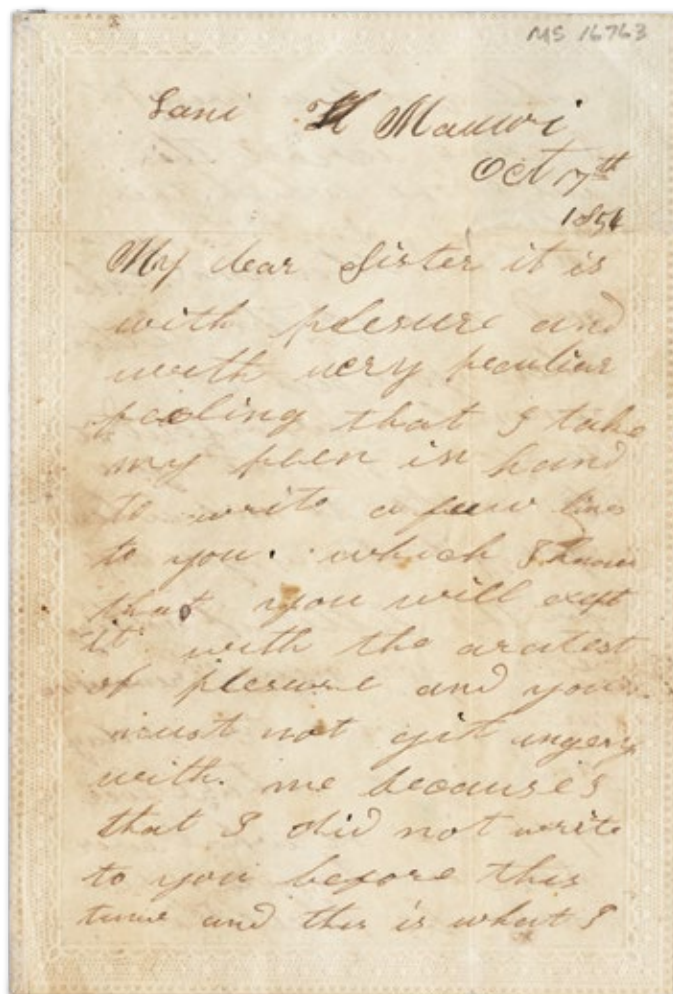 MS 16763
Mauwi
Oct 17th
My dear Sister it is
with plesure and
with very peculiar
feeling that I take
my peen in hand
to write a few lines
to you. which I know
that you will exept
it with the
of plesure and you
must not git ungery
with me because
that I did not write
to you before this
time and this is what I